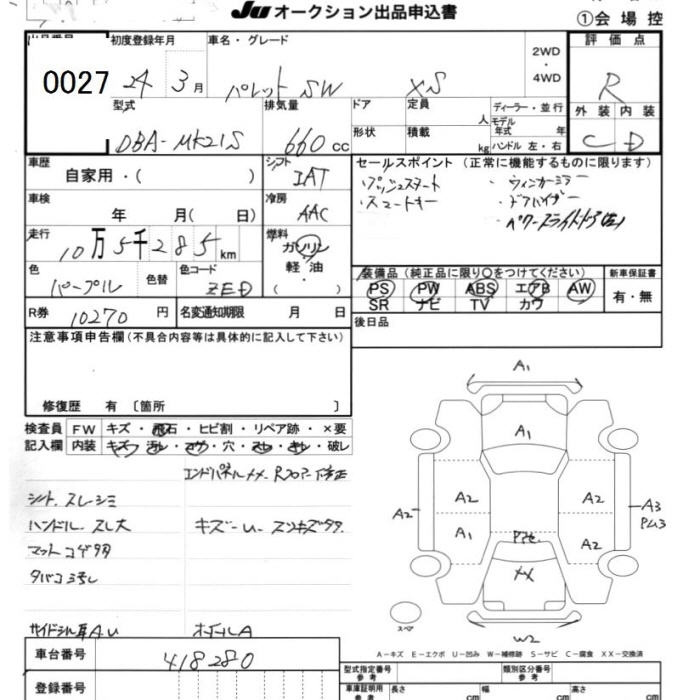 JU オークション出品申込書
①会場控
初度登録年月 車名・グレード 2WD・4WD 評価点
0027 24 3月 パレット SW XS R
型式 排気量 ドア 定員 人 ディーラー・並行 外装 内装
DBA-MK21S 660 cc 形状 積載 kg モデル年式 年 ハンドル 左・右 C D
車歴 シフト セールスポイント (正常に機能するものに限ります)
自家用・( ) IAT
・プッシュスタート ・ウィンカーミラー
車検 冷房 ・スマートキー ・ドアバイザー
年 月( 日) AAC ・パワースライドドア(左)
走行 燃料
10万5千285km ガソリン・軽油・( )
色 色替 色コード 装備品(純正品に限り○をつけてください) 新車保証書
パープル ZED PS PW ABS エアB AW 有・無
SR ナビ TV カワ
R券 10270円 名変通知期限 月 日 後日品
注意事項申告欄(不具合内容等は具体的に記入して下さい)
修復歴 有 〔箇所 〕
検査員記入欄 FW キズ・飛石・ヒビ割・リペア跡・×要
内装 キズ・汚レ・コゲ・穴・スレ・キレ・破レ
エンドパネルXX Rフロアー下修正
シート スレ シミ
ハンドル スレ大 キズ
マット コゲ
タバコ
A U A
車台番号 418280
登録番号
A1
A1
A2 A2 A2 A3
A1 A2
XX
W2
スペア
A-キズ E-エクボ U-凹み W-補修跡 S-サビ C-腐食 XX-交換済
型式指定番号 参考 類別区分番号 参考
車庫証明用 参考 長さ cm 幅 cm 高さ cm